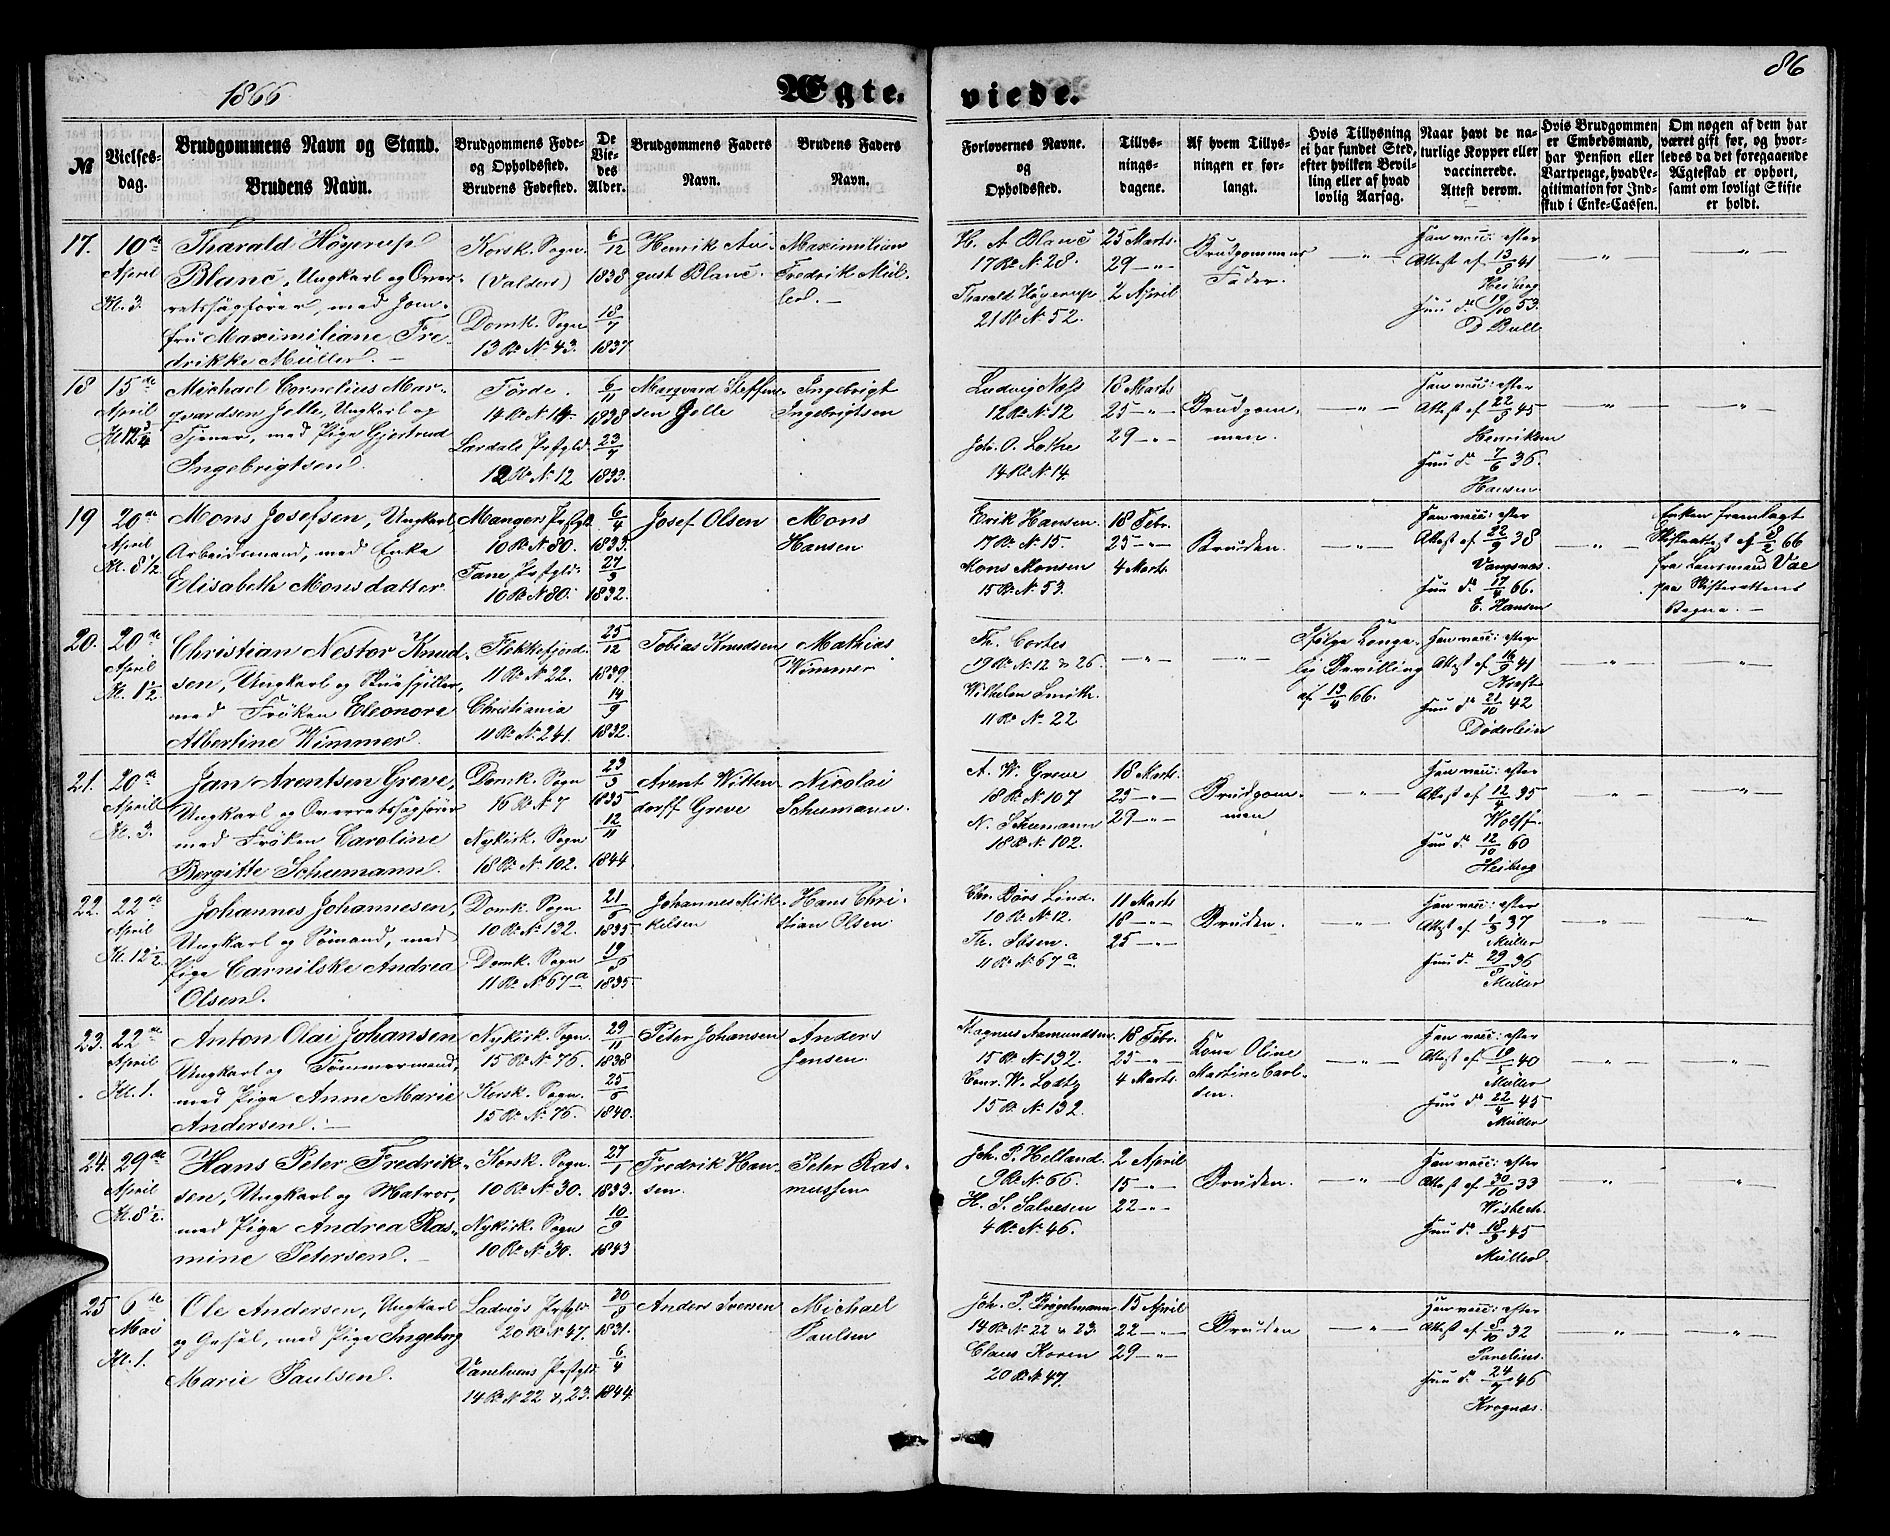 1866
Ægte-
viede.
86
№
Vielses-
dag.
Brudgommens Navn og Stand.
Brudens Navn.
Brudgommens Føde-
og Opholdssted.
Brudens Fødested.
De
Vie-
des
Alder.
Brudgommens Faders
Navn.
Brudens Faders
Navn.
Forlovernes Navne.
og
Opholdssted.
Tillys-
nings-
dagene.
Af hvem Tillys-
ningen er for-
langt.
Hvis Tillysning
ei har fundet Sted,
efter hvilken Bevil-
ling eller af hvad
lovlig Aarsag.
Naar havt de na-
turlige Kopper eller
vaccinerede.
Attest derom.
Hvis Brudgommen
er Embedsmand,
har Pension eller
Vartpenge, hvad Le-
gitimation for Ind-
skud i Enke-Cassen.
Om nogen af dem har
været gift før, og hvor-
ledes da det foregaaende
Ægteskab er ophørt,
samt om lovligt Skifte
er holdt.
17.
10de
April
Kl. 3.
Tharald Höyerup
Blanc, Ungkarl og Over-
retssagfører, med Jom-
fru Maximiliane Fre-
drikke Müller. —
Korsk. Sogn
(Valders)
Domk. Sogn
13 R. N. 43.
6/12
1838
18/7
1837
Henrik Au-
gust Blanc.
Maximilian
Fredrik Mül-
ler. —
H. A Blanc
17 R. N. 28.
Tharald Höyerup
21 R. N. 52.
25 Marts.
29 — " —
2 April
Brudgommens
Fader.
— " —
Han vacc: efter
Attest af 13/9 41
Heiberg
Hun do 19/10 53.
O Bull
— " —
— " —
18
15de
April
Kl 12 3/4
Michael Cornelius Mar-
qvardsen Jolle, Ungkarl og
Tjener, med Pige Gjertrud
Ingebrigtsen.
Förde.
14 R. N. 14.
Lærdals Præstgld.
12 R. N. 12
6/11
1838
23/7
1833.
Marqvard Steffen-
sen Jolle
Ingebrigt
Ingebrigtsen
Ludvig Næss
12 R. N. 12
Joh. O. Lothe
14 R. N. 14.
18 Marts
25 — " —
29 — " —
Brudgom-
men.
— " —
Han vacc: efter
Attest af 22/5 45
Henriksen
Hun do 7/6 36.
Hansen
— " —
— " —
19
20de
April
Kl. 8 1/2
Mons Josefsen, Ungkarl,
Arbeidsmand, med Enke
Elisabeth Monsdatter
Mangers Præstgld
10 R. N. 80.
Fane Præstgld:
10 R. N. 80.
6/4
1833.
27/3
1832.
Josef Olsen
Mons
Hansen
Erik Hansen.
17 R. N. 15.
Mons Monsen
15 R. N. 53.
18 Febr.
25 — " —
4 Marts.
Bruden.
— " —
Han vacc: efter
Attest af 22/9 38
Vangsnæs.
Hun do 17/4 66.
E. Hansen
— " —
Enken fremlagt
Skifteattest af 8/2 66
fra Lensmand
paa Skifterettens
Vegne. —
20.
20de
April
Kl. 1 1/2
Christian Nestor Knud-
sen, Ungkarl og Skuespiller,
med Fröken Eleonore
Albertine Wimmer.
Flekkefjord.
11 R. N. 22.
Christiania
11 R. N. 241.
25/12
1839.
14/9
1832.
Tobias Knudsen
Mathias
Wimmer
Th. Cortes
19 R. N. 12 & 26.
Wilhelm Smith.
11 R. N. 22
— " —
— " —
Ifølge Konge-
lig Bevilling
af 13/4 66.
Han vacc: efter
Attest af 16/9 41
Kraft
Hun do 21/10 42
Døderlein
— " —
— " —
21.
20de
April
Kl. 3.
Jan Arentsen Greve,
Ungkarl og Overretssagfører
med Fröken Caroline
Bergitte Schumann.
Domk. Sogn
16 R. N. 7
Nykirk. Sogn
18 R. N. 102.
23/3
1835
12/11
1844.
Arent Witten-
dorff Greve
Nicolai
Schumann.
A. W. Greve
18 R. N. 107
N. Schumann
18 R. N. 102.
18 Marts.
25 — " —
29 — " —
Brudgom-
men
— " —
Han vacc: efter
Attest af 12/4 35
Wolff.
Hun do 12/10 60
Heiberg
— " —
— " —
22.
22de
April
Kl. 12 1/2
Johannes Johannesen,
Ungkarl og Sømand, med
Pige Carnilske Andrea
Olsen.
Domk. Sogn
10 R. N. 132.
Domk. Sogn
11 R. N. 67a
21/5
1835.
19/8
1835
Johannes Mik-
kelsen
Hans Chri-
stian Olsen
Chr. Börs Lind.
10 R. N. 12.
Th. Ibsen.
11 R. N. 67a
11 Marts
18 — " —
25 — " —
Bruden.
— " —
Han vacc: efter
Attest af 1/5 37
Müller
Hun do 29/8 36
Müller
— " —
— " —
23.
22de
April
Kl. 1.
Anton Olai Johansen
Ungkarl og Tømmermand,
med Pige Anne Marie
Andersen. —
Nykirk. Sogn.
15 R. N. 76.
Korsk. Sogn.
15 R. N. 76.
29/11
1838
25/5
1840.
Peter Johansen
Anders
Jensen.
Magnus Aamundsen.
15 R. N. 132.
Conr. W. Lodtz
15 R. N. 132
18 Febr.
25 — " —
4 Marts.
Kone Oline
Martine Carl-
sen.
— " —
Han vacc: efter
Attest af 40
Müller
Hun do 22/4 45
Müller
— " —
— " —
24.
29de
April
Kl. 8 1/2.
Hans Peter Fredrik-
sen, Ungkarl og Matros,
med Pige Andrea Ras-
mine Petersen. —
Korsk. Sogn.
10 R. N. 30.
Nykirk. Sogn
10 R. N. 30.
27/1
1833.
10/9
1843
Fredrik Han-
sen.
Peter Ras-
mussen
Joh. P. Helland.
9 R. N. 66.
H. S. Salvesen
4 R. N. 46.
2 April
15 — " —
22 — " —
Bruden.
— " —
Han vacc: efter
Attest af 30/10 33
Wisbech.
Hun do 18/3 45
Müller.
— " —
— " —
25
6te
Mai
Kl. 1.
Ole Andersen, Ungkarl
og Gesel, med Pige Ingeborg
Marie Paulsen.
Ladvigs Præstgld
20 R. N. 47.
Vanelvens Præstgld
14 R. N 22 & 23.
30/8
1831.
6/4
1844
Anders Iversen
Michael
Paulsen
Joh. P. Brögelmann
14 R. N. 22 & 23.
Claus Koren
20 R. N. 47.
15 April
22 — " —
29 — " —
Bruden
— " —
Han vacc: efter
Attest af 8/10 32
Panelius.
Hun do 24/9 46
Krognæs.
— " —
— " —